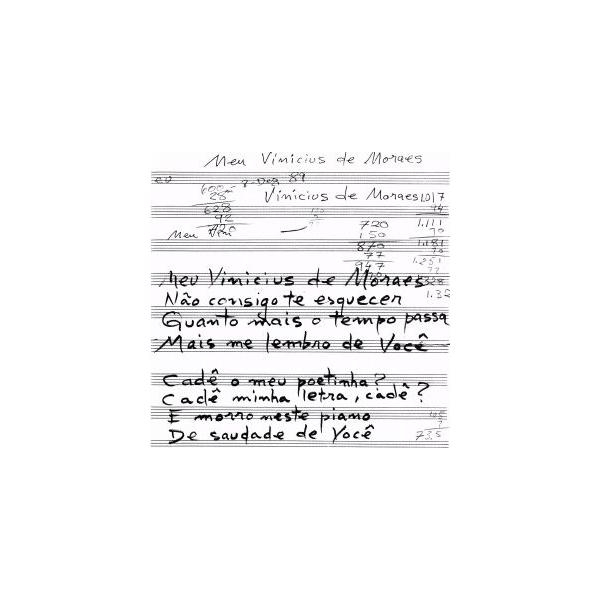 Meu Vinicius de Moraes
7-Dez 89
Vinicius de Moraes 1.017
628
92
720
150
870
77
947
44
1.111
70
1.181
70
1.251
77
1.328
Meu
Meu Vinicius de Moraes
Não consigo te esquecer
Quanto mais o tempo passa
Mais me lembro de Você
Cadê o meu poetinha?
Cadê minha letra, cadê?
E morro neste piano
De saudade de Você
73,5